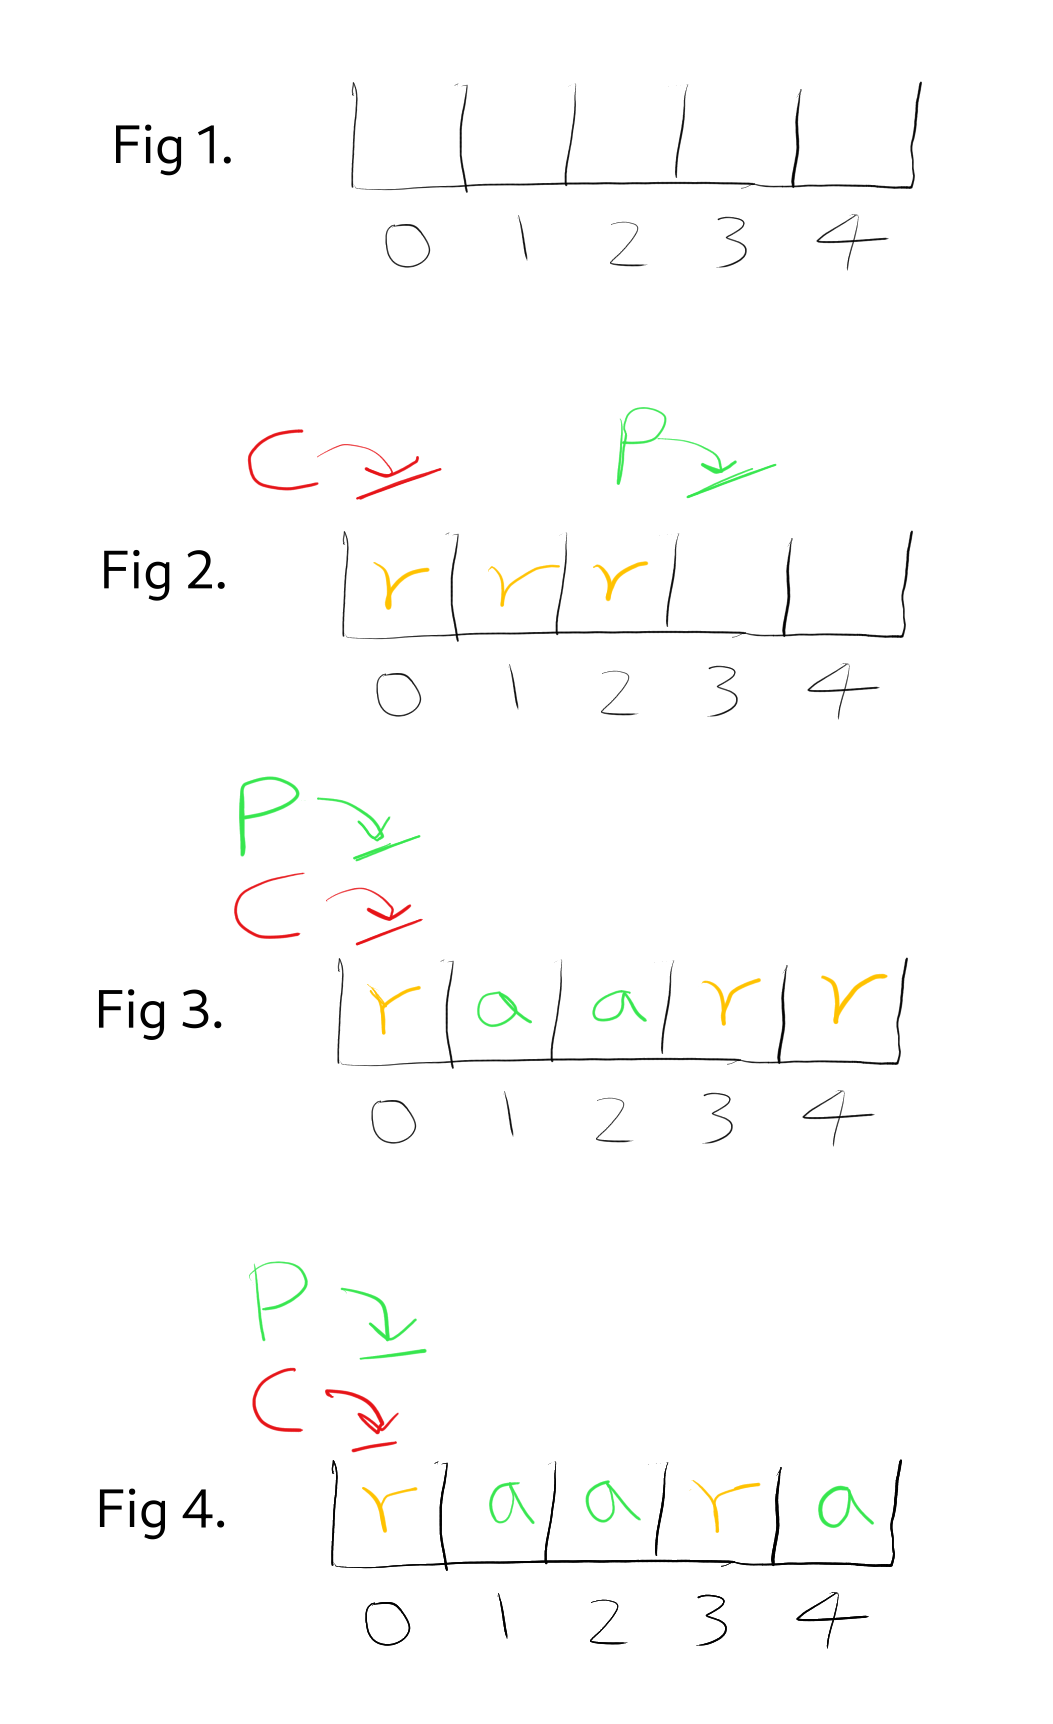 Fig 1.
0 1 2 3 4
C P
Fig 2. r r r
0 1 2 3 4
P
C
Fig 3. r a a r r
0 1 2 3 4
P
C
Fig 4. r a a r a
0 1 2 3 4